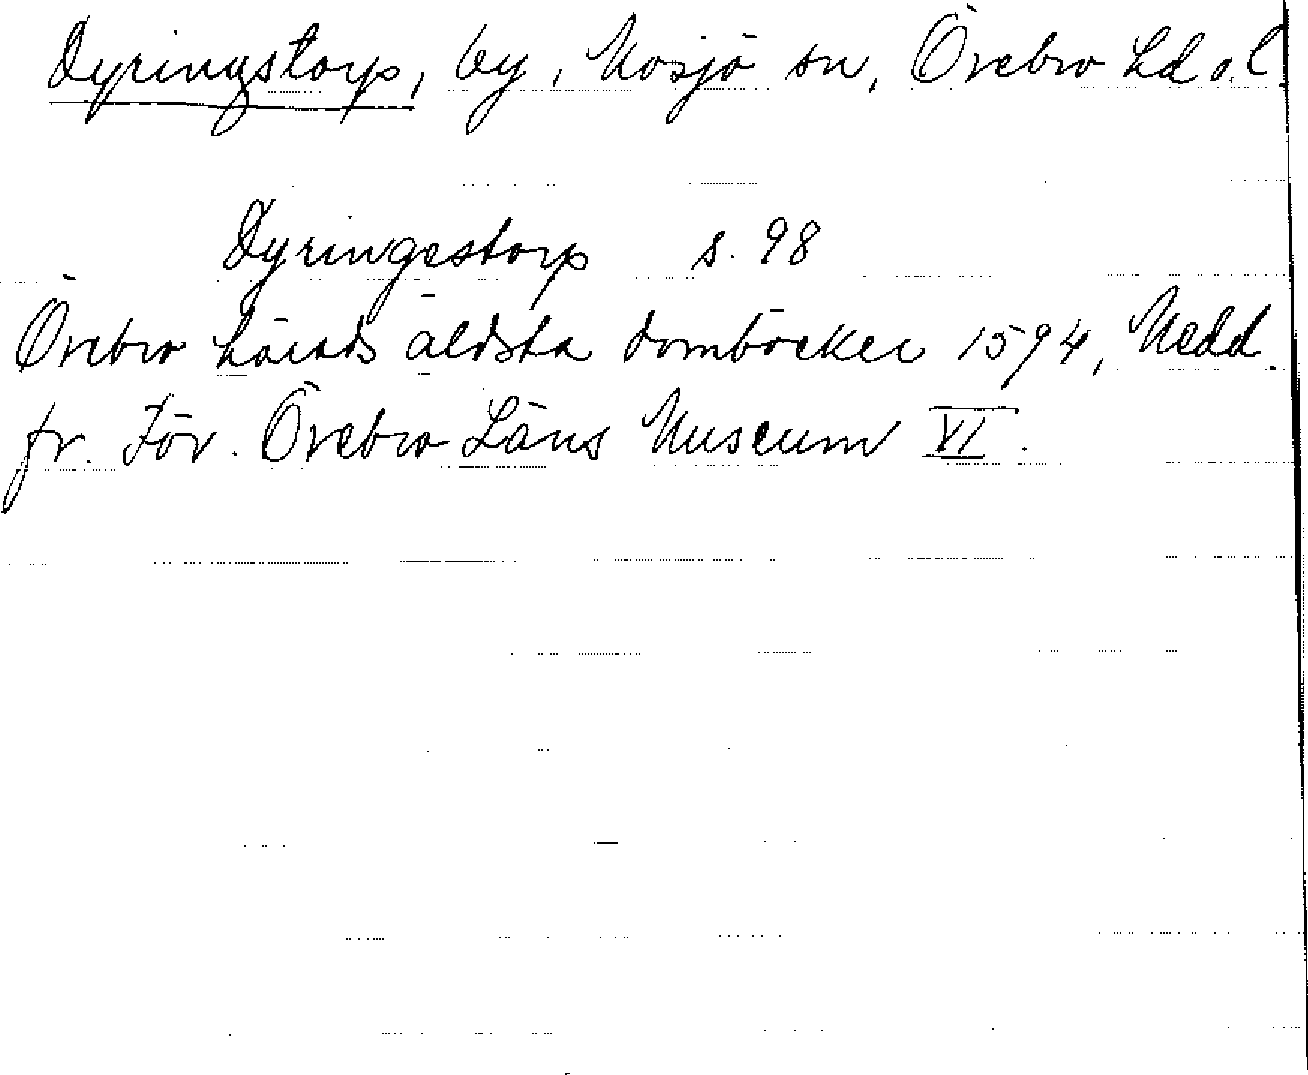 Dyringstorp, by, Mosjö sn, Örebro hd o. l.
Dyringestorp s. 98
Örebro härads äldsta domböcker 1594, Medd.
fr. För. Örebro Läns Museum VI.